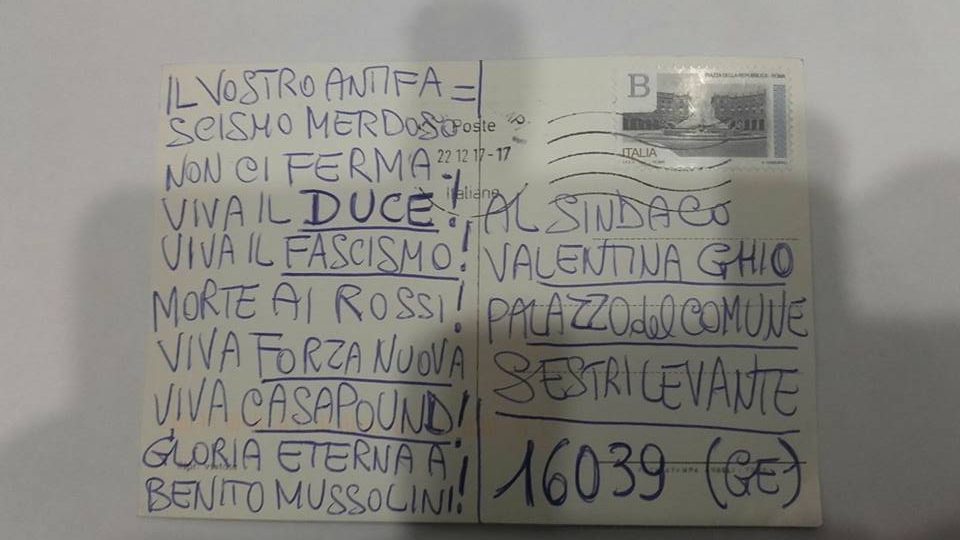 IL VOSTRO ANTIFA=
SCISMO MERDOSO
NON CI FERMA!
VIVA IL DUCE!
VIVA IL FASCISMO!
MORTE AI ROSSI!
VIVA FORZA NUOVA
VIVA CASAPOUND!
GLORIA ETERNA A
BENITO MUSSOLINI!
Poste
22 12 17-17
Italiane
B
PIAZZA DELLA REPUBBLICA - ROMA
ITALIA
AL SINDACO
VALENTINA GHIO
PALAZZO del COMUNE
SESTRI LEVANTE
16039 (GE)